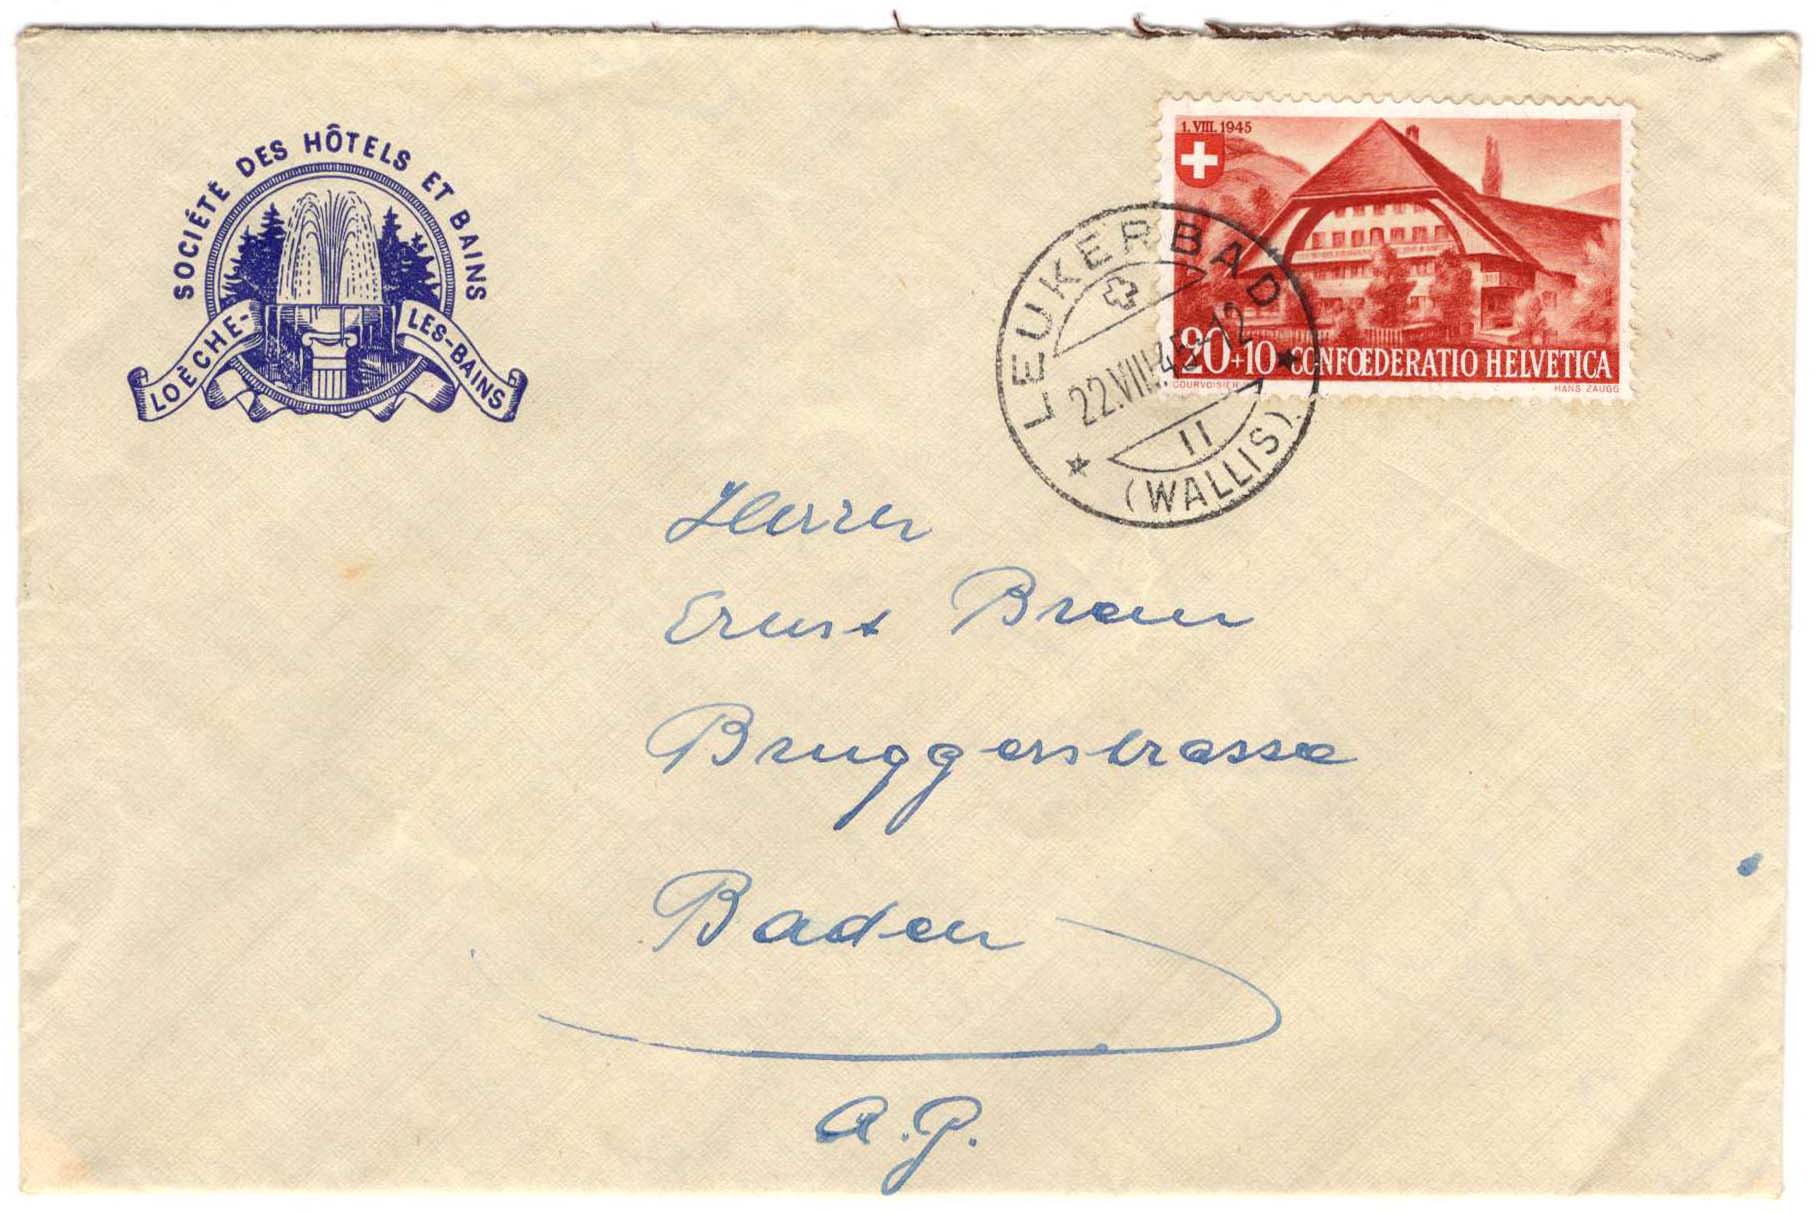 SOCIÉTÉ DES HÔTELS ET BAINS
LOÈCHE-LES-BAINS
1. VIII. 1945
20+10 CONFŒDERATIO HELVETICA
COURVOISIER
HANS ZAUGG
LEUKERBAD
22.VIII.45-12
II
(WALLIS)
Herrn
Ernst Braun
Bruggerstrasse
Baden
A.G.